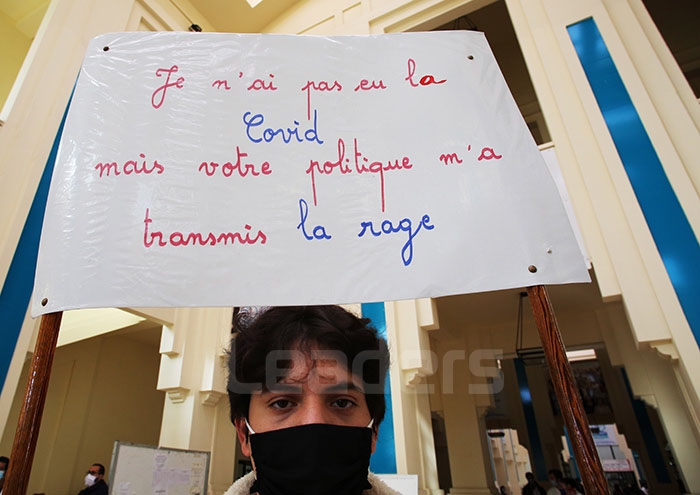 Je n'ai pas eu la
Covid
mais votre politique m'a
transmis la rage
Leaders